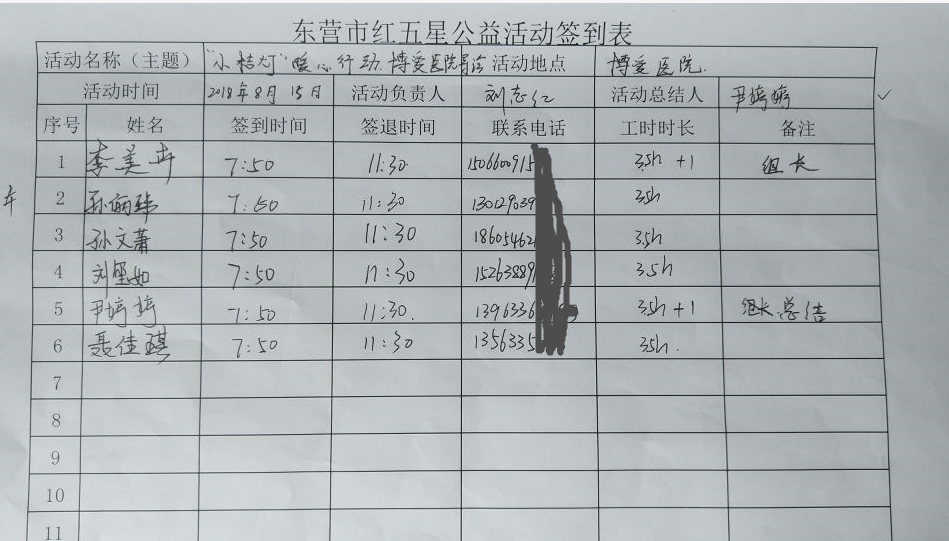 东营市红五星公益活动签到表
活动名称（主题） "小桔灯"暖心行动.博爱医院导诊 活动地点 博爱医院.
活动时间 2018年8月15日 活动负责人 刘志红 活动总结人 尹婷婷 ✓
序号 姓名 签到时间 签退时间 联系电话 工时时长 备注
1 李美卉 7:50 11:30 1506600915 3.5h +1 组长
2 孙 7:50 11:30 130129039 3.5h
3 孙文萧 7:50 11:30 18605462 3.5h
4 刘坚如 7:50 11:30 152638891 3.5h
5 尹婷婷 7:50 11:30. 1396336 3.5h +1 组长.总结
6 聂佳琪 7:50 11:30 1356335 3.5h.
7
8
9
10
11